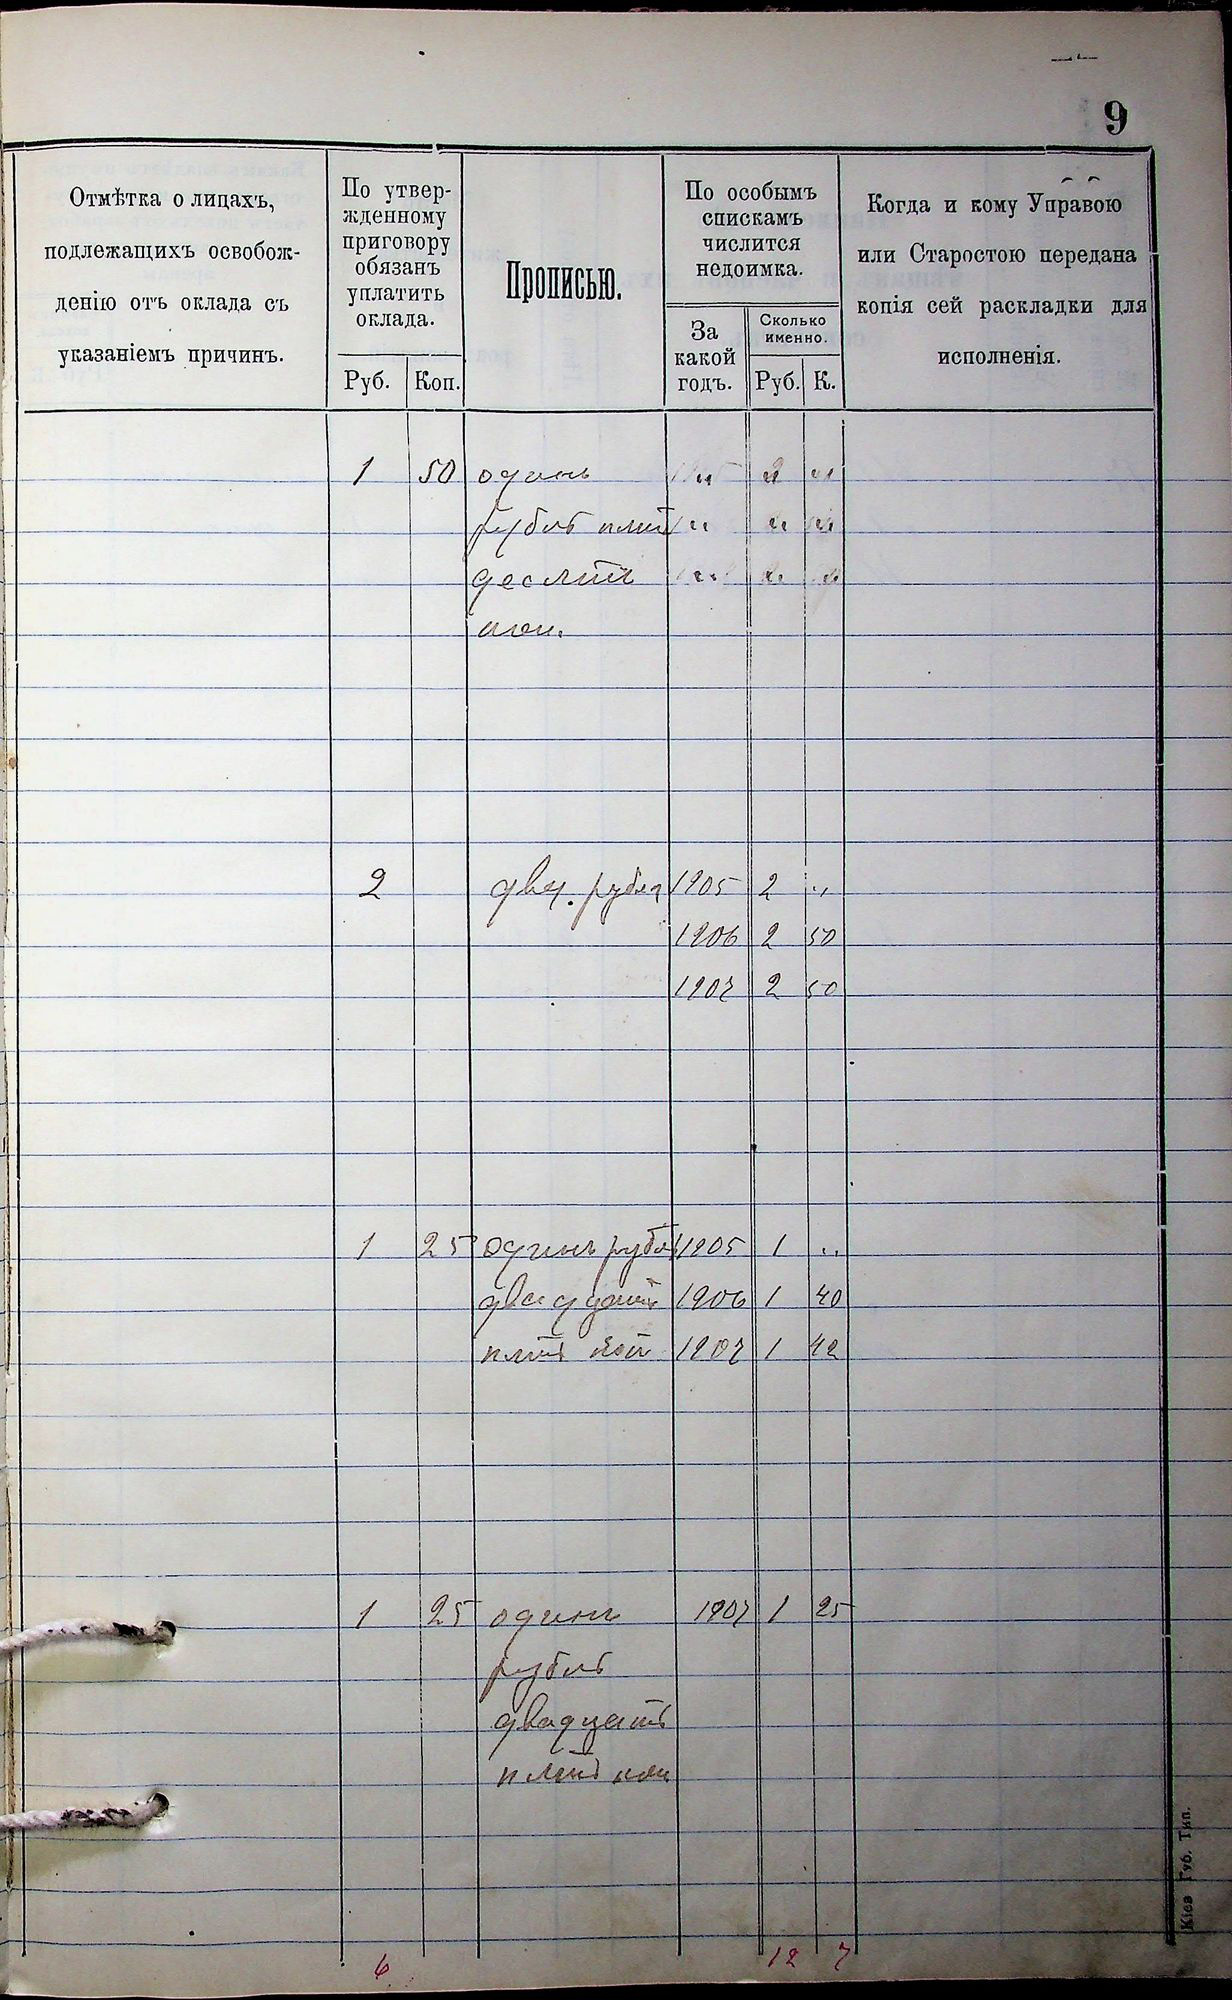 9
Отмѣтка о лицахъ,
подлежащихъ освобож-
денію отъ оклада съ
указаніемъ причинъ.
По утвер-
жденному
приговору
обязанъ
уплатить
оклада.
Руб. Коп.
Прописью.
По особымъ
спискамъ
числится
недоимка.
За
какой
годъ.
Сколько
именно.
Руб. К.
Когда и кому Управою
или Старостою передана
копія сей раскладки для
исполненія.
1 50 одинъ " " "
рубль пять " " "
десять " " "
коп.
2 два рубля 1905 2 "
1906 2 50
1907 2 50
1 25 одинъ рубль 1905 1 "
двадцать 1906 1 40
пять коп 1907 1 42
1 25 одинъ 1907 1 25
рубль
двадцать
пять коп
6 12 7
Кіев Губ. Тип.